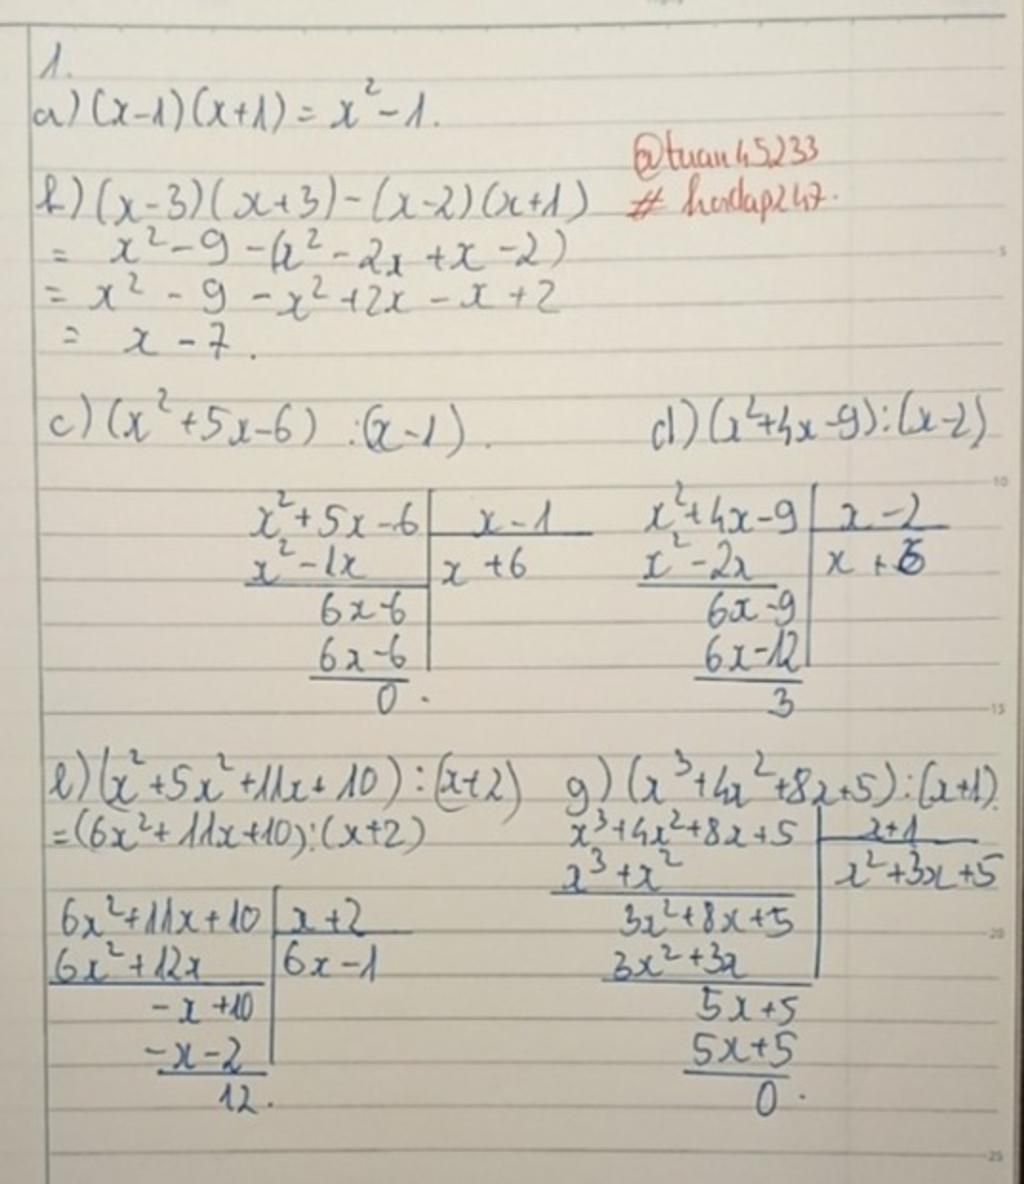 1.
a) (x-1)(x+1) = x² - 1.
@tuan45233
b) (x-3)(x+3) - (x-2)(x+1)
# hoidap247.
= x² - 9 - (x² - 2x + x - 2)
= x² - 9 - x² + 2x - x + 2
= x - 7.
c) (x² + 5x - 6) : (x - 1).
x² + 5x - 6 | x - 1
x² - 1x | x + 6
6x - 6
6x - 6
0.
d) (x² + 4x - 9) : (x - 2)
x² + 4x - 9 | x - 2
x² - 2x | x + 6
6x - 9
6x - 12
3
e) (x² + 5x² + 11x + 10) : (x + 2)
= (6x² + 11x + 10) : (x + 2)
6x² + 11x + 10 | x + 2
6x² + 12x | 6x - 1
-x + 10
-x - 2
12.
g) (x³ + 4x² + 8x + 5) : (x + 1)
x³ + 4x² + 8x + 5 | x + 1
x³ + x² | x² + 3x + 5
3x² + 8x + 5
3x² + 3x
5x + 5
5x + 5
0.
5
10
15
20
25